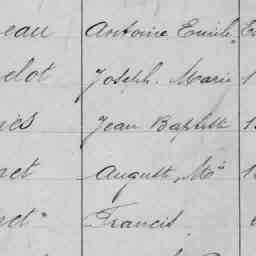 eau Antoine Emile
elot Joseph Marie 1
es Jean Baptiste 1
et Auguste Mie 1
et Francis